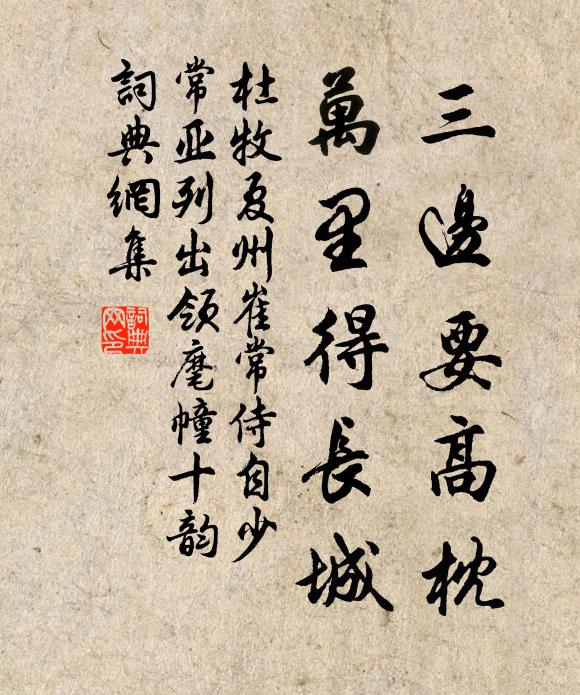 三邊要高枕
萬里得長城
杜牧夏州崔常侍自少
常亚列出领麾幢十韵
詞典網集
詞典
网印